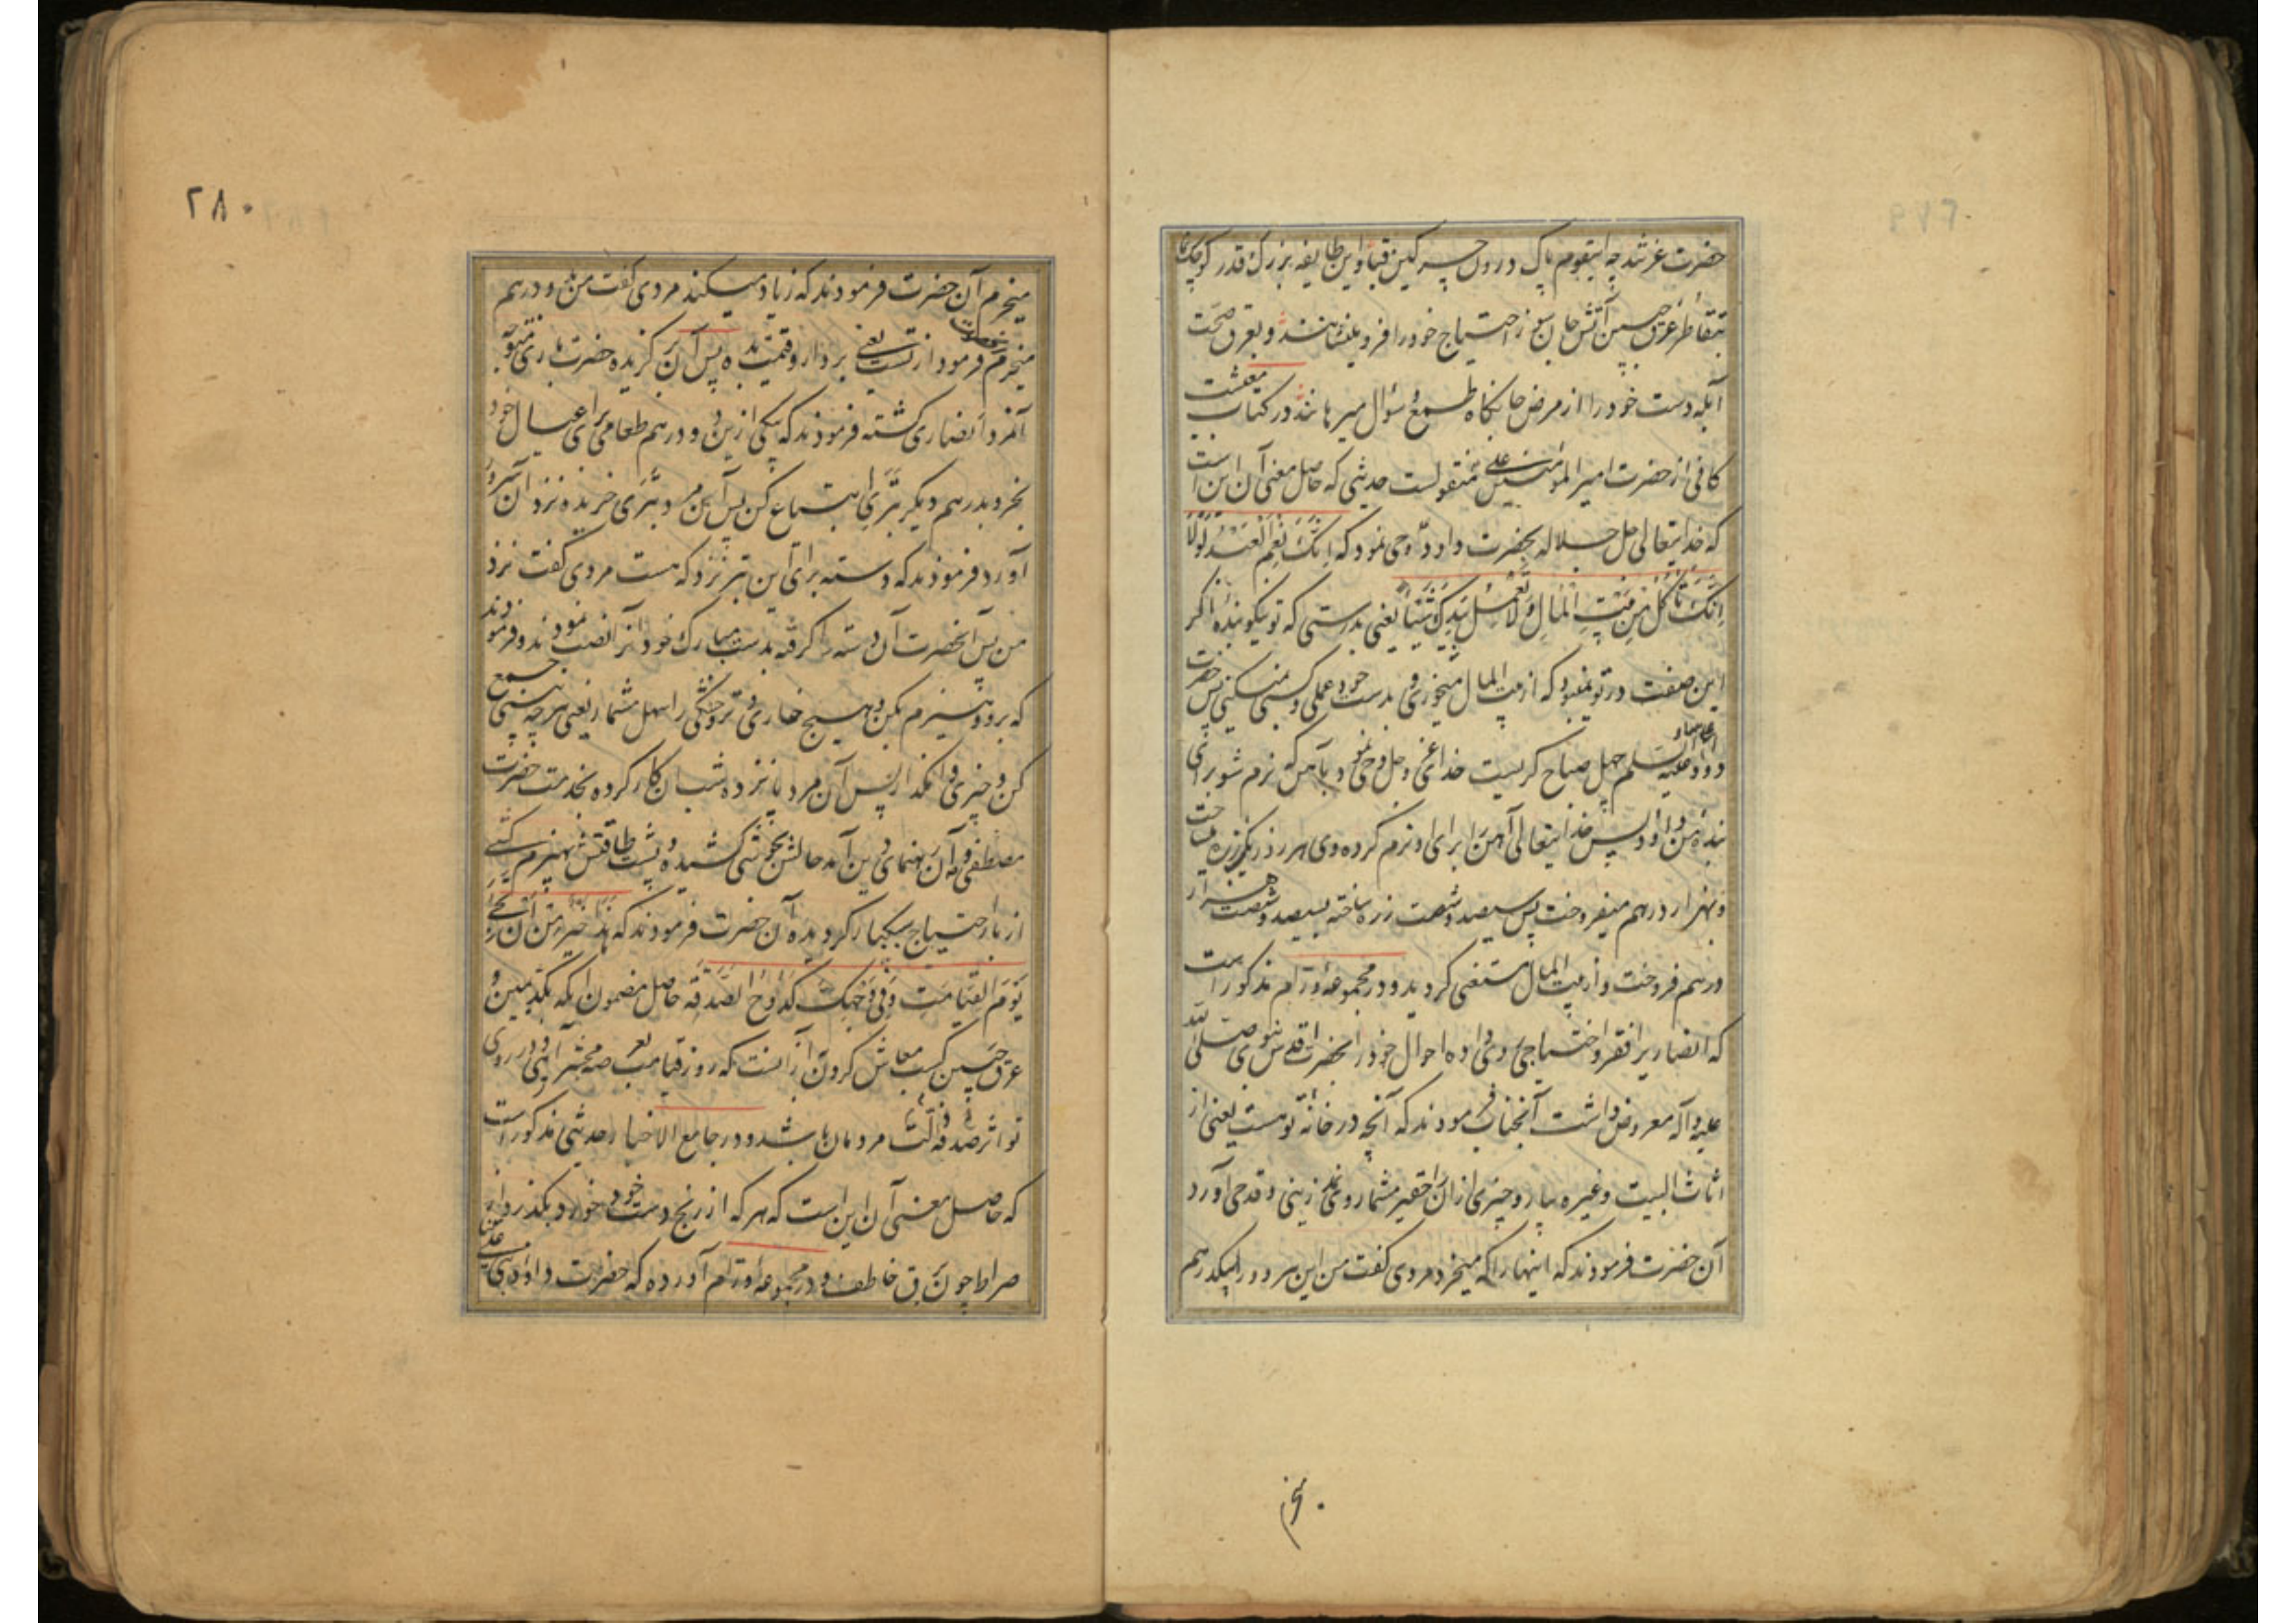 حضرت عزتند چه اینقوم پاک درون چرکین قبا و این طایفه بزرگ قدر کوچک نما
بتقاطر عرق جبین آتش جان سوز احتیاج خود را فرو مینشانند و بعرق صحت
آبله دست خود را از مرض جانکاه طمع و سؤال میرهانند در کتاب معیشت
کافی از حضرت امیر المؤمنین علی منقولست حدیثی که حاصل معنی آن این است
که خدایتعالی جل جلاله بحضرت داود وحی نمود که انک نعم العبد لولا
انک تاکل من بیت المال و لا تعمل بیدک شیئا یعنی بدرستی که تو نیکو بنده اگر
این صفت در تو نمیبود که از بیت المال میخوری و بدست خود عملی و کسبی نمیکنی پس حضرت
داود علیه السلم چهل صباح کریست خدای عز و جل وحی نمود بآهن که نرم شو برای
بنده من داود پس خدایتعالی آهن را برای او نرم کرده وی هر روز یکزره میساخت
و بهزار درهم میفروخت پس سیصد و شصت زره ساخته بسیصد و شصت هزار
درهم فروخت و از بیت المال مستغنی کردید و در مجموعه ورام مذکور است
که انصاریرا فقر و احتیاجی روی داده احوال خود را بحضرت اقدس نبوی صلی الله
علیه و آله معروض داشت آنجناب فرمودند که آنچه در خانه تو هست یعنی از
اثاث البیت و غیره بیار و چیزی از آن را حقیر مشمار وی زینی و قدحی آورد
آن حضرت فرمودند که اینها را که میخرد مردی کفت من این هر دو را بیکدرهم
میخرم
۲۸۰
میخرم آن حضرت فرمودند که زیاد میکند مردی کفت من بدو درهم
میخرم حضرت فرمود از تست یعنی بردار و قیمت بده پس آن برکزیده حضرت باری متوجه
آنمرد انصاری کشته فرمودند که یکی ازین دو درهم طعامی برای عیال خود
بخر و بدرهم دیکر تبری ابتیاع کن پس آن مرد تبری خریده نزد آن سرور
آورد فرمودند که دسته برای این تبر نزد که هست مردی کفت نزد
من پس آنحضرت آن دسته را کرفته بدست مبارک خود آنرا نصب نمودند و فرمودند
که برو و هیزم بکن و هیچ خاری و تر و خشکی را سهل مشمار یعنی هر چه بینی جمع
کن و چیزی وا مکذار پس آن مرد پانزده شب آن کار کرده بخدمت حضرت
مصطفوی آن رهنمای دین آمد حالش بخوشی کشیده و پشت طاقتش بهیزم کشی
از بار احتیاج سبکبار کردیده آن حضرت فرمودند که هذا خیر من ان تجئ
یوم القیامت و فی وجهک کدوح الصدقه حاصل مضمون آنکه بکد یمین و
عرق جبین کسب معاش کردن از آنست که روز قیامت بعرصه محشر آیی و در روی
تو اثر صدقه مردمان باشد و در جامع الاخبار حدیثی مذکور است
که حاصل معنی آن این است که هر که از رنج دست خود خورد بکذرد از
صراط چون برق خاطف و در مجموعه ورام آورده که حضرت داود نبی علی